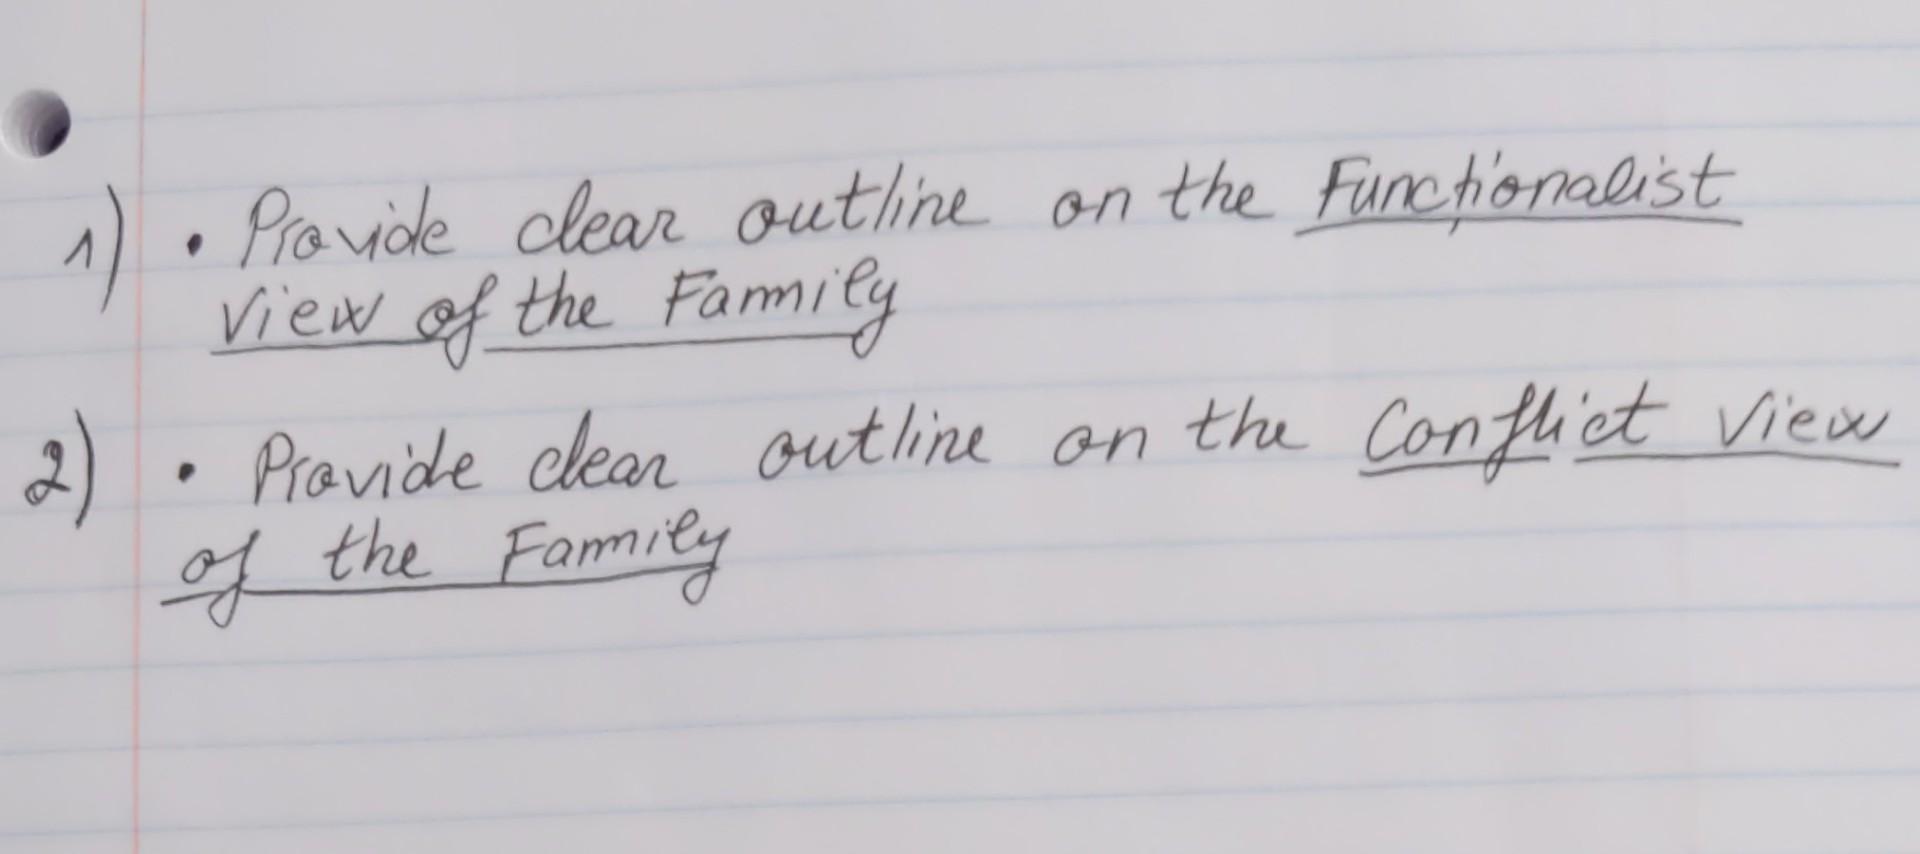 1) • Provide clear outline on the Functionalist
View of the Family
2) • Provide clear outline on the Conflict View
of the Family